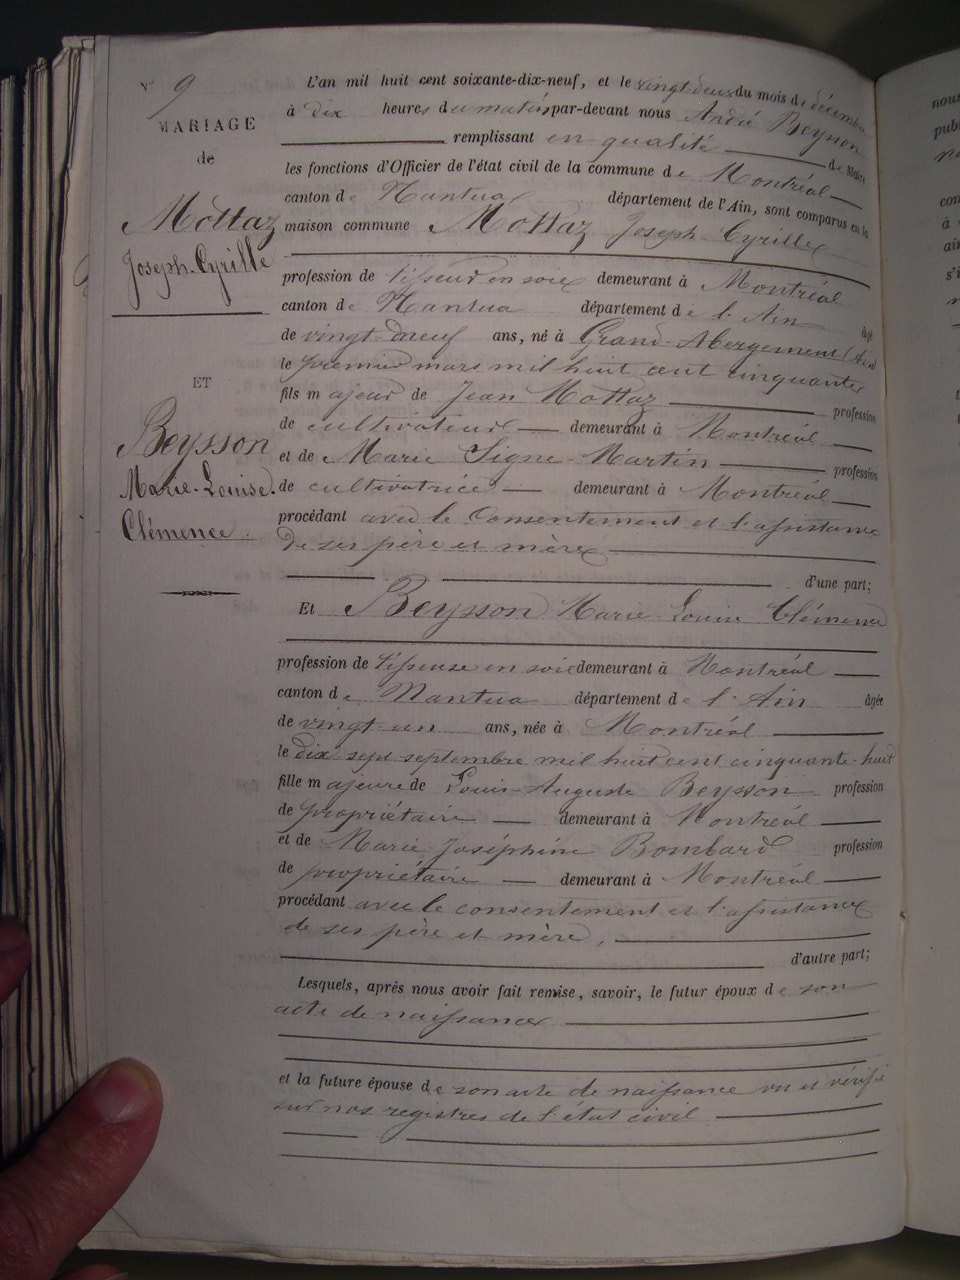 N° 9
MARIAGE
de
Mottaz
Joseph-Cyrille
ET
Beysson
Marie-Louise
Clémence
L'an mil huit cent soixante-dix-neuf, et le vingt-deux du mois de décembre
à dix heures du matin par-devant nous André Beysson
remplissant en qualité de Maire
les fonctions d'Officier de l'état civil de la commune de Montréal
canton de Nantua département de l'Ain, sont comparus en la
maison commune Mottaz Joseph-Cyrille
profession de tisseur en soie demeurant à Montréal
canton de Nantua département de l'Ain âgé
de vingt-neuf ans, né à Grand-Abergement (Ain)
le premier mars mil huit cent cinquante
fils majeur de Jean Mottaz profession
de cultivateur demeurant à Montréal
et de Marie Signe-Martin profession
de cultivatrice demeurant à Montréal
procédant avec le consentement et l'assistance
de ses père et mère
d'une part;
Et Beysson Marie-Louise Clémence
profession de tisseuse en soie demeurant à Montréal
canton de Nantua département de l'Ain âgée
de vingt-un ans, née à Montréal
le dix-sept septembre mil huit cent cinquante-huit
fille majeure de Louis-Auguste Beysson profession
de propriétaire demeurant à Montréal
et de Marie Joséphine Bombard profession
de propriétaire demeurant à Montréal
procédant avec le consentement et l'assistance
de ses père et mère,
d'autre part;
Lesquels, après nous avoir fait remise, savoir, le futur époux de son
acte de naissance
et la future épouse de son acte de naissance vu et vérifié
sur nos registres de l'état civil